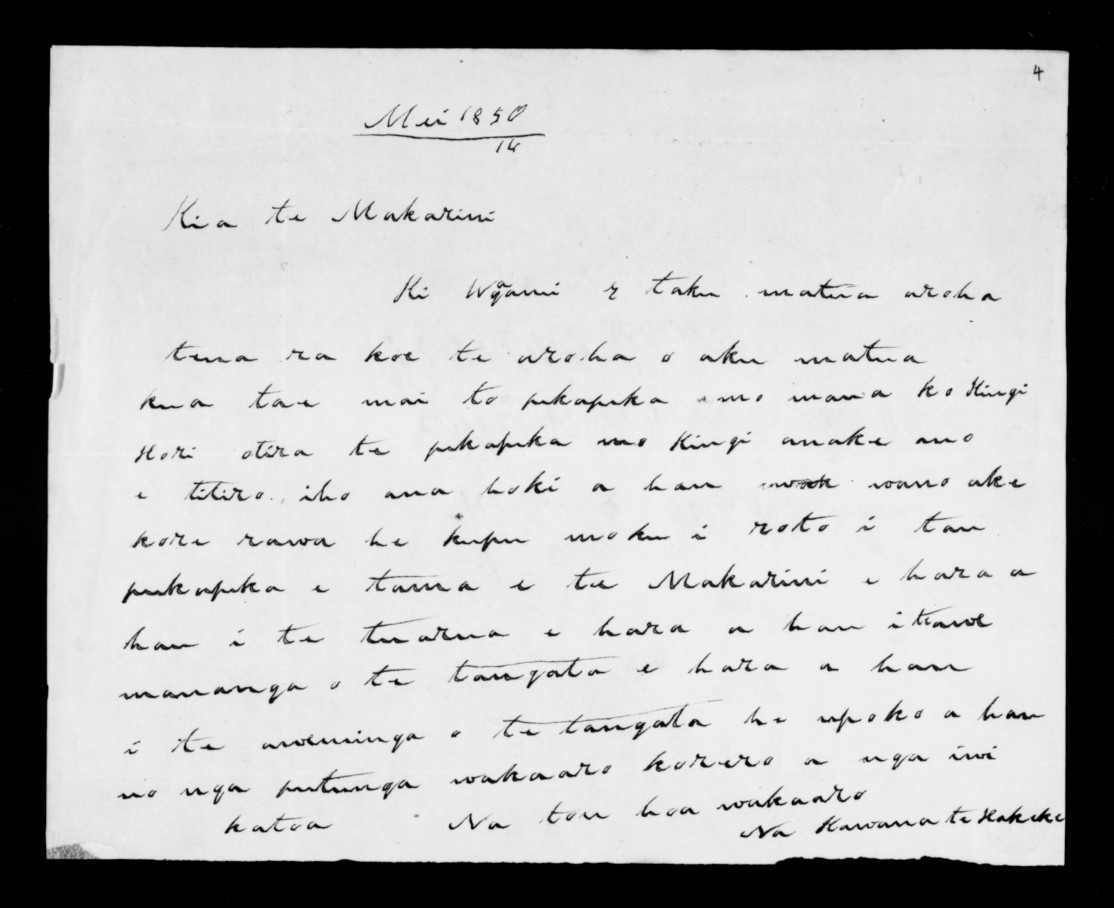 4
Mei 1850
14
Kia te Makarini
Ki Wgami e taku matua aroha
tena ra koe te aroha o aku matua
kua tae mai to pukapuka mo maua ko Kingi
Hori otira te pukapuka mo Kingi anake ano
e titiro iho ana hoki a hau wano ake
kore rawa he kupu moku i roto i tau
pukapuka e tama e te Makarini e hara a
hau i te tuarua e hara a hau i te awe
mananga o te tangata e hara a hau
i te aweminga o te tangata he upoko a hau
no nga putunga wakaaro korero a nga iwi
katoa Na tou hoa wakaaro
Na Kawana te Hakeke